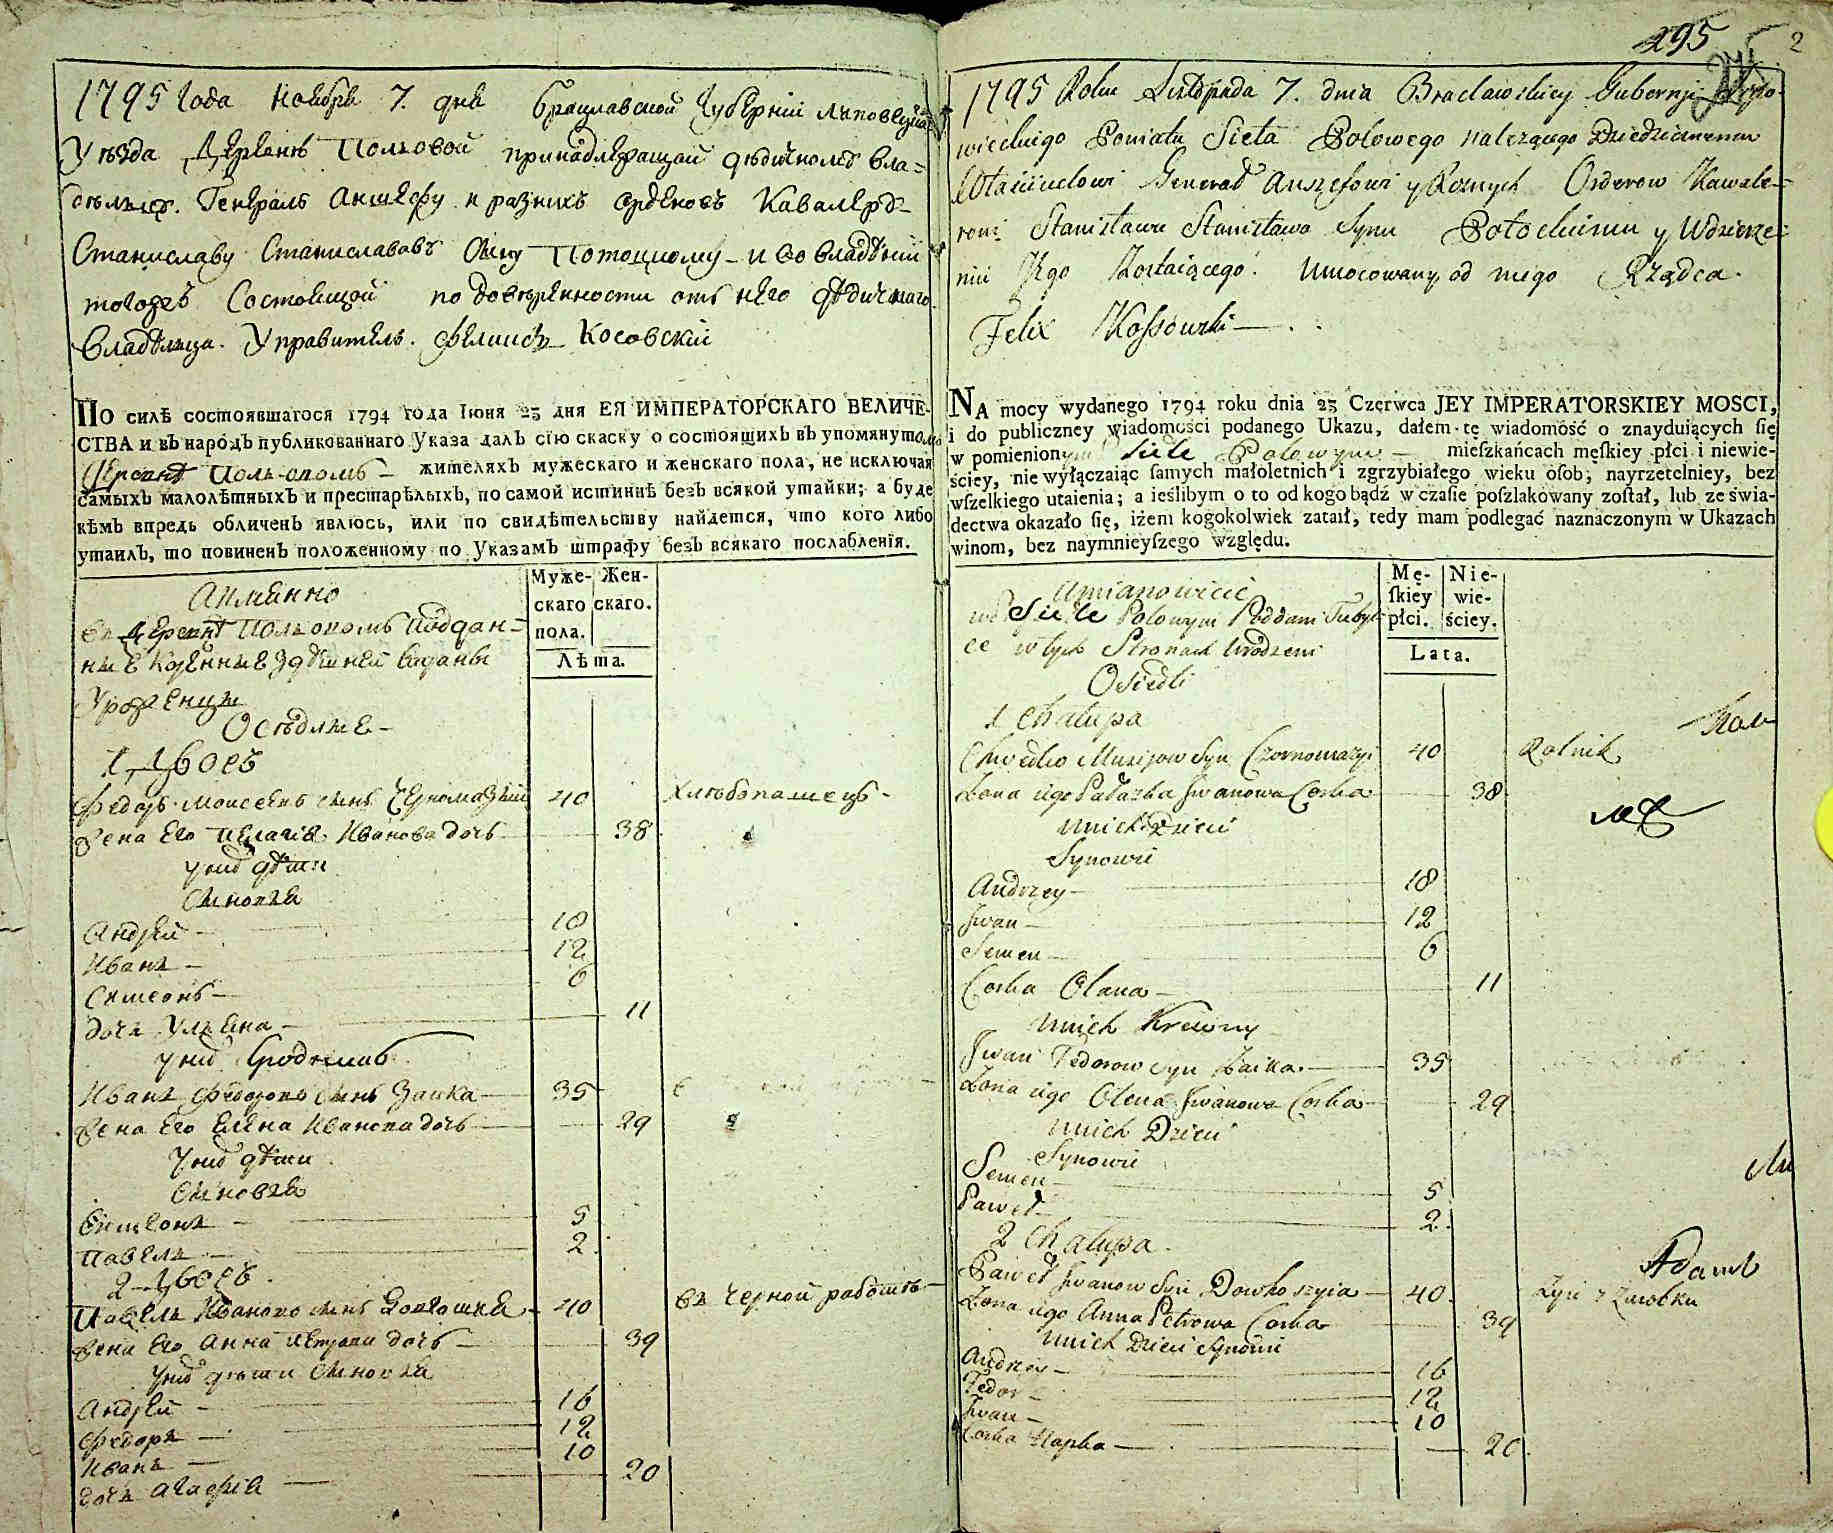 1795 Года Ноября 7. дня Брацлавской Губернии Липовецкаго
Уезда Деревне Польовой принадлежащой дедичному вла-
дельцу. Генераль Аншефу и разних орденовъ Кавалеру
Станиславу Станиславовъ Сыну Потоцкому и во владении
тогожъ Состоящой по доверенности отъ него дедичнаго
владельца. Управитель. Феликсъ Косовский
ПО силѣ состоявшагося 1794 года Іюня 23 дня ЕЯ ИМПЕРАТОРСКАГО ВЕЛИЧЕ-
СТВА и въ народъ публикованнаго Указа далъ сію скаску о состоящихъ въ упомянутой
Деревне Польовомъ жителяхъ мужескаго и женскаго пола, не исключая
самыхъ малолѣтныхъ и престарѣлыхъ, по самой истиннѣ безъ всякой утайки; а буде
кѣмъ впредь обличенъ явлюсь, или по свидѣтельству найдется, что кого либо
утаилъ, то повиненъ положенному по Указамъ штрафу безъ всякаго послабленія.
Муже-скаго пола. Жен-скаго.
Лѣта.
Аименно
въ Деревне Польовомъ Поддан-
ные Коренные здешней Украины
Уроженцы
Оседлые
1 Дворъ
Федоръ Моисеевъ сынъ Чорномазий 40 Хлебопашецъ
Жена Его Пелагия Иванова дочь 38
у них дети
Сыновья
Андрей 18
Иванъ 12
Симеонъ 6
дочь Ульяна 11
у них Сродникъ
Иванъ Федоровъ сынъ Заика 35
Жена Его Елена Иванова дочь 29
У них дети
Сыновья
Симеонъ 5
Павелъ 2
2 Дворъ
Павелъ Ивановъ сынъ 40 въ Черной работе
Жена Его Анна Петрова дочь 39
У них дети Сыновья
Андрей 16
Федоръ 12
Иванъ 10
дочь Агафия 20
295
2
1795 Roku Listopada 7. dnia Bracławskiey Gubernji Lipo-
wieckiego Powiatu Sieła Polowego należącego Dziedzicznemu
Właścicielowi Generał Anszefowi y Roznych Orderow Kawale-
rowi Stanisławu Stanisława Synu Potockiemu y Wdzierże-
niu Jego Zostaiącego. Umocowany od niego Rządca.
Felix Kossowski
NA mocy wydanego 1794 roku dnia 23 Czerwca JEY IMPERATORSKIEY MOSCI,
i do publiczney wiadomości podanego Ukazu, dałem tę wiadomość o znayduiących się
w pomienionym Siele Polowym mieszkańcach męskiey płci i niewie-
ściey, nie wyłączaiąc samych małoletnich i zgrzybiałego wieku osob; nayrzetelniey, bez
wszelkiego utaienia; a ieślibym o to od kogo bądź w czasie poszlakowany został, lub ze świa-
dectwa okazało się, iżem kogokolwiek zataił, tedy mam podlegać naznaczonym w Ukazach
winom, bez naymnieyszego względu.
Mę-skiey płci. Nie-wie-ściey.
Lata.
Umianowicie
we Siele Polowym Poddani Tubyl-
ce w tych Stronach Urodzeni
Osiedli
1 Chałupa
Chwedko Musijow Syn Czornomazyi 40 Rolnik
Żona iego Pałazka Jwanowa Corka 38
Unich Dzieci
Synowie
Andrzey 18
Jwan 12
Semen 6
Corka Olana 11
Unich Krewny
Jwan Fedorow Syn Zaika 35
Żona iego Olena Jwanowa Corka 29
Unich Dzieci
Synowie
Semen 5
Paweł 2
2 Chałupa
Paweł Jwanow Syn Dowhoszyia 40 Żyie z Zarobku
Żona iego Anna Petrowa Corka 39
Unich Dzieci Synowie
Andrzey 16
Fedor 12
Jwan 10
Corka Hapka 20
Адамъ